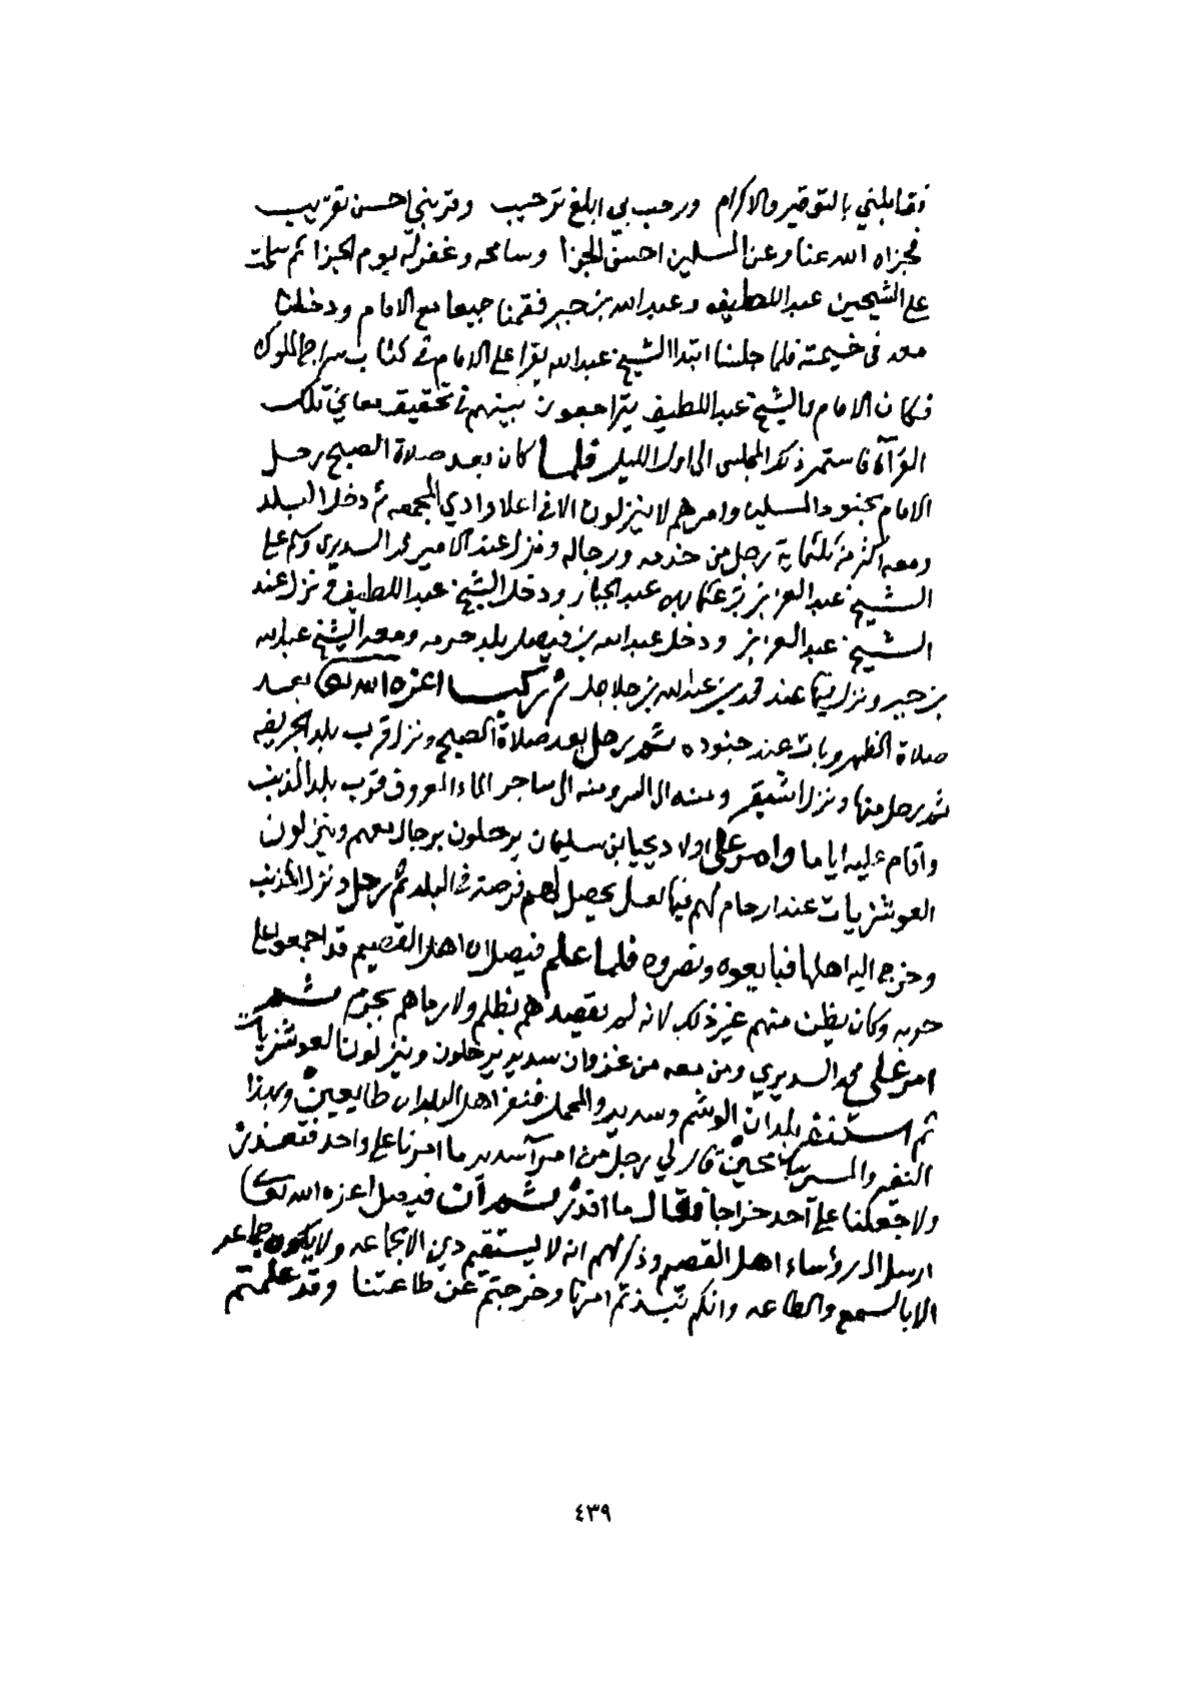 فقابلني بالتوقير والاكرام ورحب بي ابلغ ترحيب وقربني احسن تقريب
فجزاه الله عنا وعن المسلمين احسن الجزا وسامحه وغفر له يوم الجزا ثم سلمت
على الشيخين عبداللطيف وعبدالله بن جبير فقمنا جميعا مع الامام ودخلنا
معه في خيمته فلما جلسنا ابتدا الشيخ عبدالله يقرا على الامام في كتاب سراج الملوك
فكان الامام والشيخ عبداللطيف يتراجعون بينهم في تحقيق معاني تلك
القرآة فاستمر ذلك المجلس الى اول الليل فلما كان بعد صلاة الصبح رحل
الامام بجنود المسلمين وامرهم لا ينزلون الا في اعلا وادي المجمعه ثم دخل البلد
ومعه اكثر من ثلثماية رجل من خدمه ورجاله ونزل عند الامير محمد السديري وسلم على
الشيخ عبدالعزيز بن عثمان بن عبدالجبار ودخل الشيخ عبداللطيف ونزل عند
الشيخ عبدالعزيز ودخل عبدالله بن فيصل بلد حرمه ومعه الشيخ عبدالله
بن جبير ونزل فيها عند محمد بن عبدالله بن جلاجل ثم ركب اعزه الله تعالى بعد
صلاة الظهر وبات عند جنوده ثم رحل بعد صلاة الصبح ونزل قرب بلد الحريق
ثم رحل منها ونزل اشيقر ومنه الى السر ومنه الى ساجر الماء المعروف قرب بلد المذنب
واقام عليه اياما وامر على اولاد يحيا بن سليمان يرحلون برجال معهم وينزلون
العوشزيات عند ارحام لهم فيها لعل يحصل لهم فرصة في البلد ثم رحل ونزل المذنب
وخرج اليه اهلها فبايعوه ونصروه فلما علم فيصل ان اهل القصيم قد اجمعوا على
حربه وكان يظن منهم غير ذلك لانه لم يقصدهم بظلم ولا رماهم بجرم ثم
امر على محمد السديري ومن معه من غزوان سدير يرحلون وينزلون العوشزيات
ثم استنفر بلدان الوشم وسدير والمحمل فنفر اهل البلدان طايعين وبهذا
النفير والمسير محبين قال لي رجل من امرآ سدير ما امرنا على واحد فتعذر
ولا جعلنا على آحد خراجا فقال ما اقدر ثم آن فيصل اعزه الله تعالى
ارسل الى رؤساء اهل القصيم وذكر لهم انه لا يستقيم دين الا بجماعه ولا يكون جماعه
الا بالسمع والطاعه وانكم نبذتم امرنا وخرجتم عن طاعتنا وقد علمتم
٤٣٩